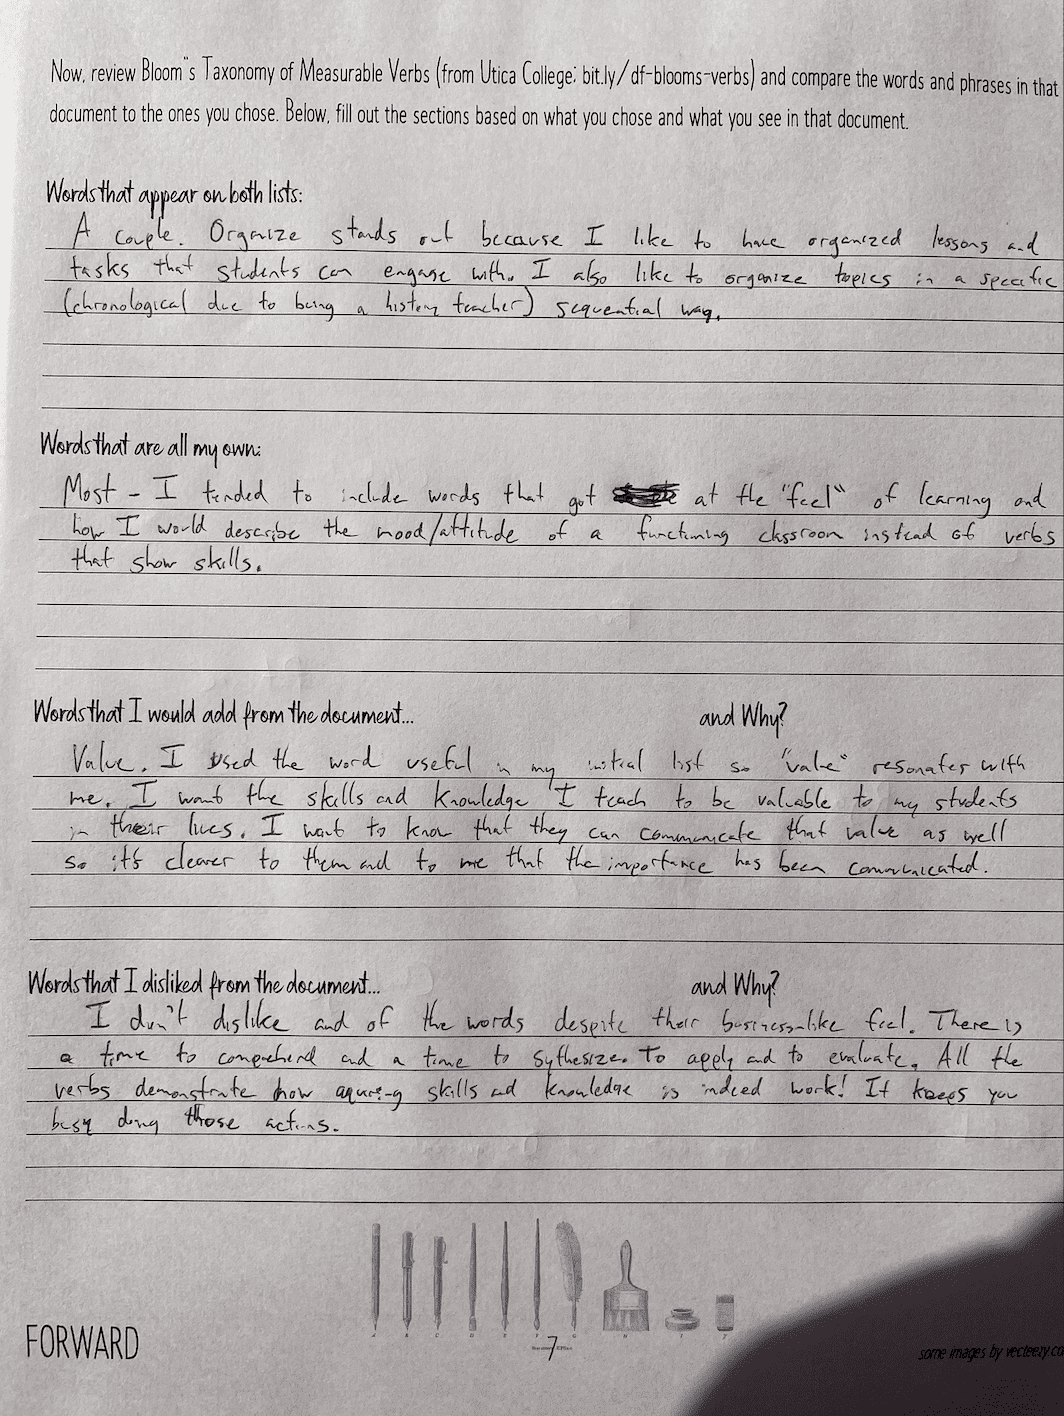 Now, review Bloom"s Taxonomy of Measurable Verbs (from Utica College: bit.ly/df-blooms-verbs) and compare the words and phrases in that
document to the ones you chose. Below, fill out the sections based on what you chose and what you see in that document.
Words that appear on both lists:
A couple. Organize stands out because I like to have organized lessons and
tasks that students can engage with. I also like to organize topics in a specific
(chronological due to being a history teacher) sequential way.
Words that are all my own:
Most - I tended to include words that got at the "feel" of learning and
how I would describe the mood/attitude of a functioning classroom instead of verbs
that show skills.
Words that I would add from the document... and Why?
Value. I used the word useful in my initial list so "value" resonates with
me. I want the skills and knowledge I teach to be valuable to my students
in their lives. I want to know that they can communicate that value as well
so it's clearer to them and to me that the importance has been communicated.
Words that I disliked from the document... and Why?
I don't dislike and of the words despite their business-like feel. There is
a time to comprehend and a time to sythesize. To apply and to evaluate. All the
verbs demonstrate how aquring skills and knowledge is indeed work! It keeps you
busy doing those actions.
A B C D E F G H I J
7
FORWARD
some images by vecteezy.co